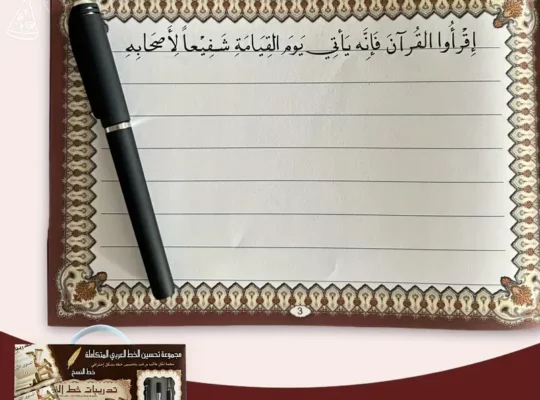 إِقْرَأُوا القُرآنَ فَإِنَّه يَأتِي يَومَ القِيَامَةِ شَفِيْعاً لِأَصحَابِهِ
3
مجموعة تحسين الخط العربي المتكاملة
خط النسخ
تدريبات خط